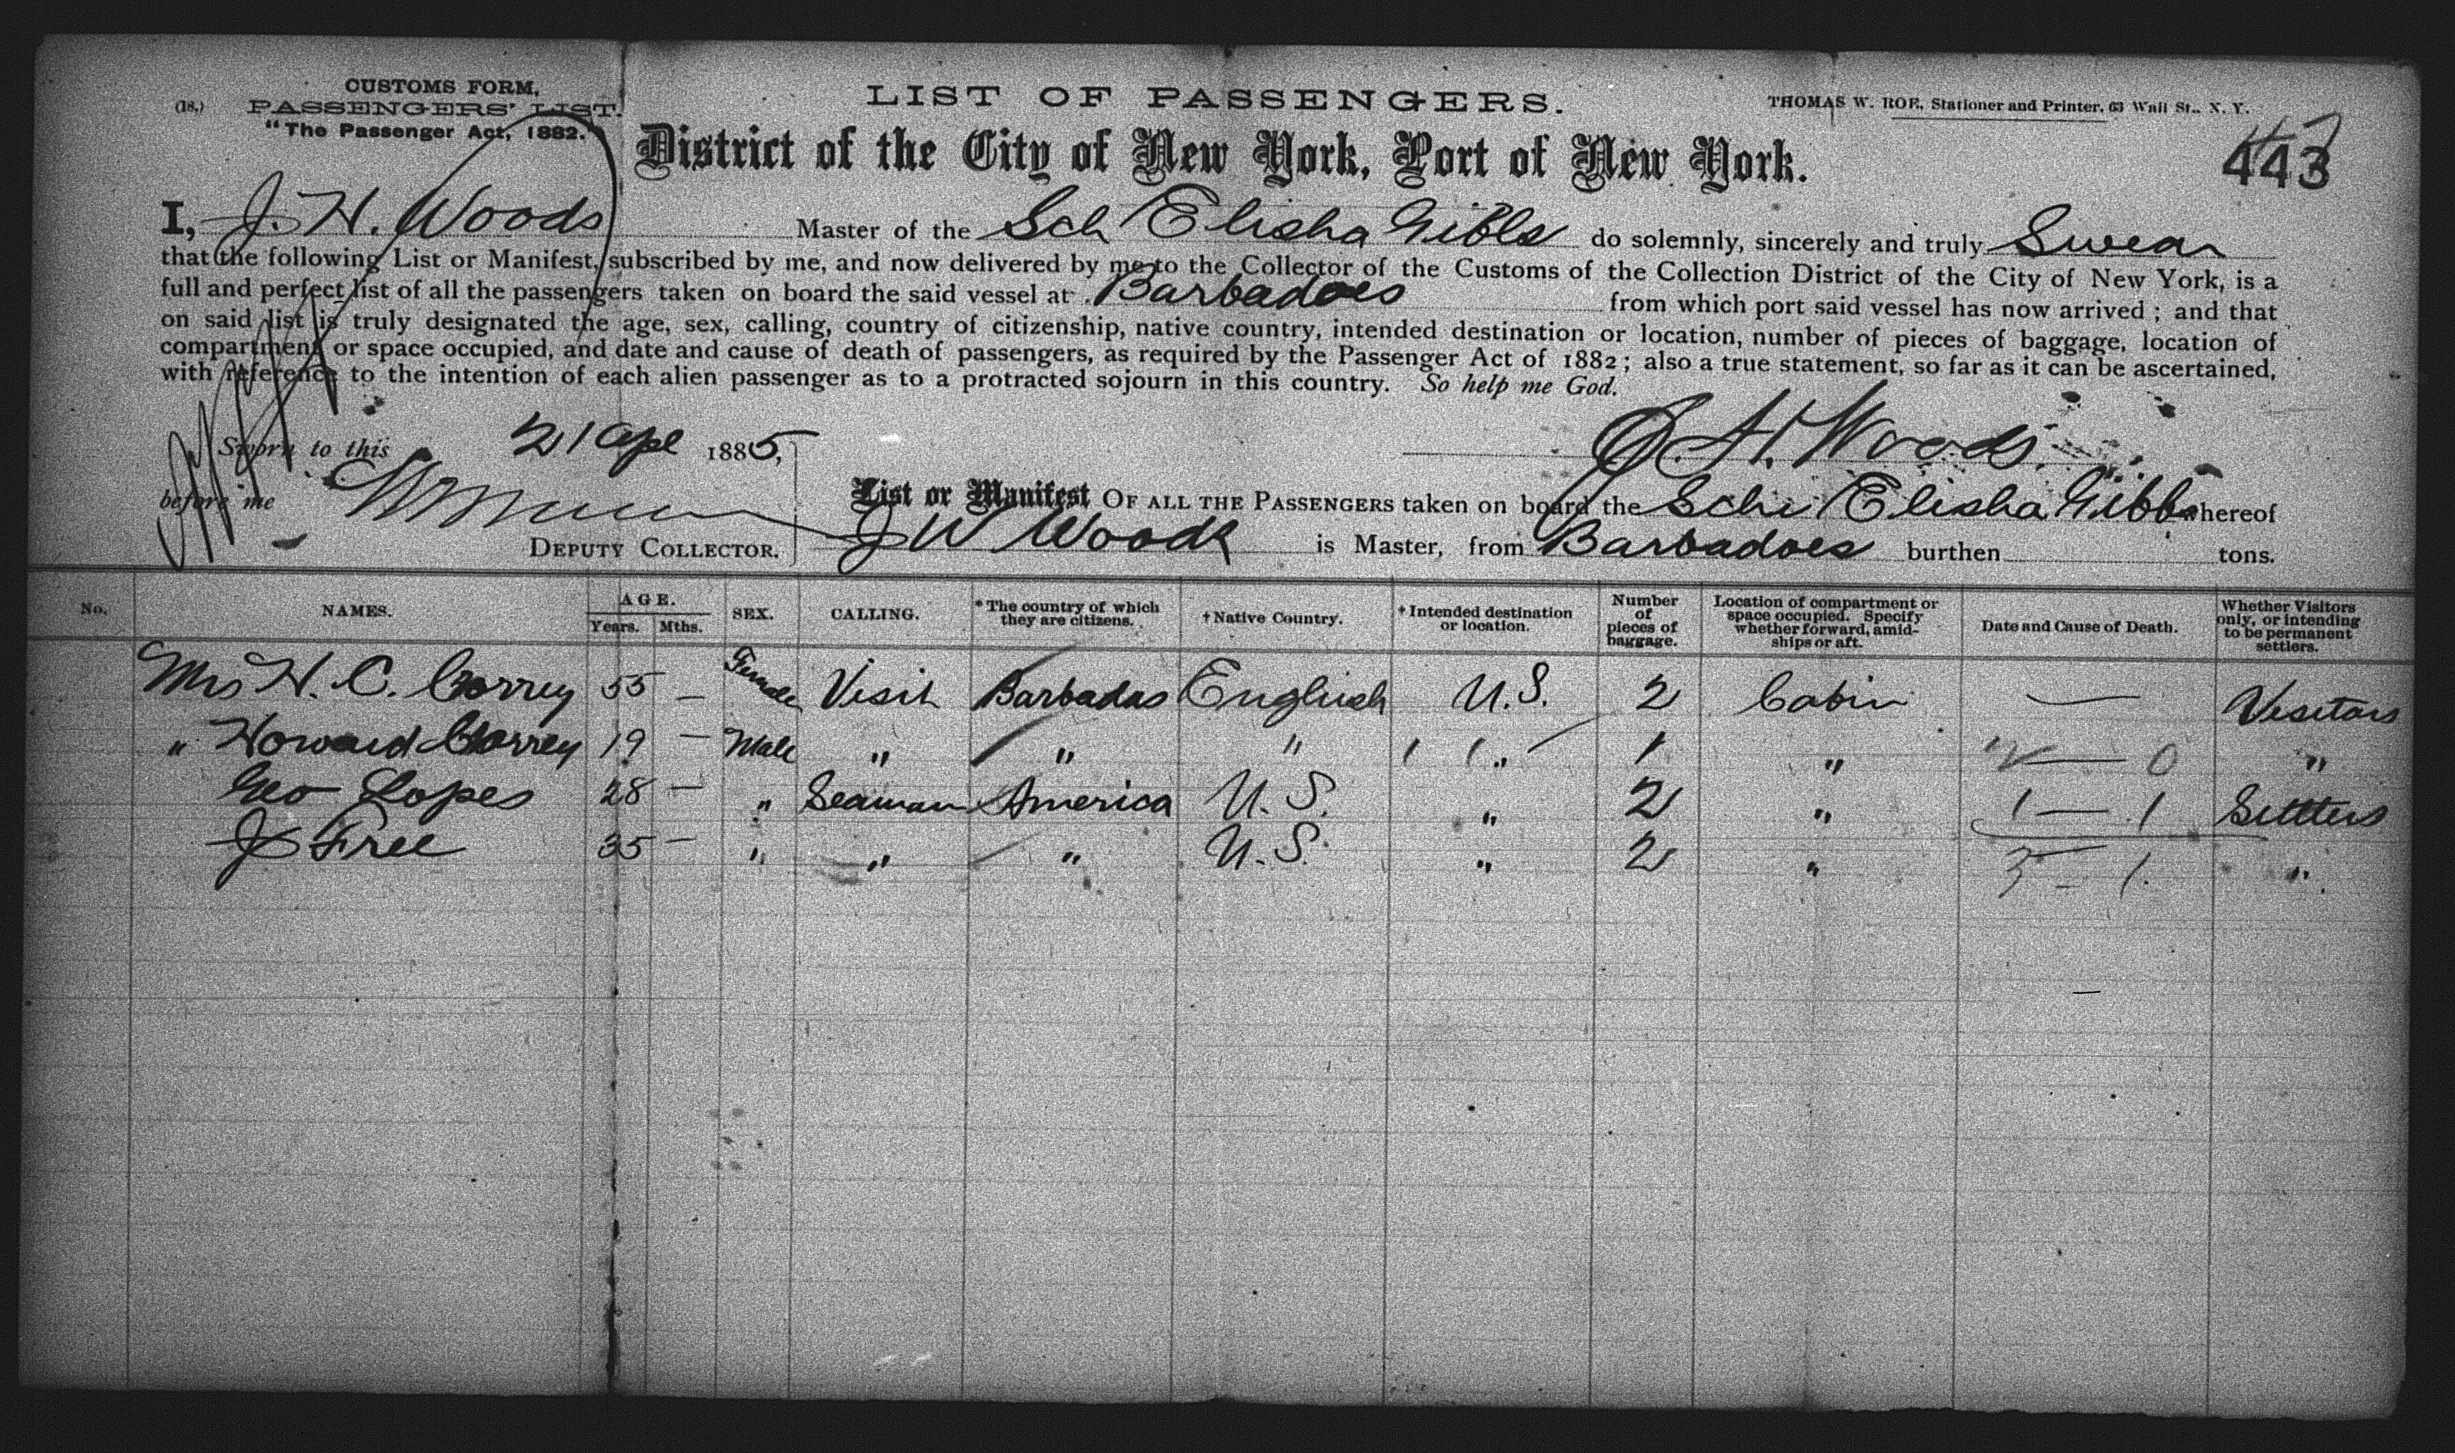 CUSTOMS FORM,
(18.) PASSENGERS' LIST.
"The Passenger Act, 1882."
LIST OF PASSENGERS.
THOMAS W. ROE, Stationer and Printer, 63 Wall St., N. Y.
District of the City of New York, Port of New York.
443
I, J. H. Woods Master of the Sch Elisha Gibbs do solemnly, sincerely and truly Swear
that the following List or Manifest, subscribed by me, and now delivered by me to the Collector of the Customs of the Collection District of the City of New York, is a
full and perfect list of all the passengers taken on board the said vessel at Barbadoes from which port said vessel has now arrived; and that
on said list is truly designated the age, sex, calling, country of citizenship, native country, intended destination or location, number of pieces of baggage, location of
compartment or space occupied, and date and cause of death of passengers, as required by the Passenger Act of 1882; also a true statement, so far as it can be ascertained,
with reference to the intention of each alien passenger as to a protracted sojourn in this country. So help me God.
Sworn to this 21 Apl 1885,
J. H. Woods.
before me
DEPUTY COLLECTOR.
List or Manifest OF ALL THE PASSENGERS taken on board the Schr Elisha Gibbs whereof
J W Woods is Master, from Barbadoes burthen tons.
No. NAMES. AGE. Years. Mths. SEX. CALLING. * The country of which they are citizens. † Native Country. † Intended destination or location. Number of pieces of baggage. Location of compartment or space occupied. Specify whether forward, amidships or aft. Date and Cause of Death. Whether Visitors only, or intending to be permanent settlers.
Mrs H. C. Correy 55 — Female Visit Barbadas English U.S. 2 Cabin — Visitors
" Howard Correy 19 — Male " " " " 1 " — "
Geo Lopes 28 — " Seaman America U.S. " 2 " 1 — 1 Settlers
J Free 35 — " " " U.S. " 2 " "